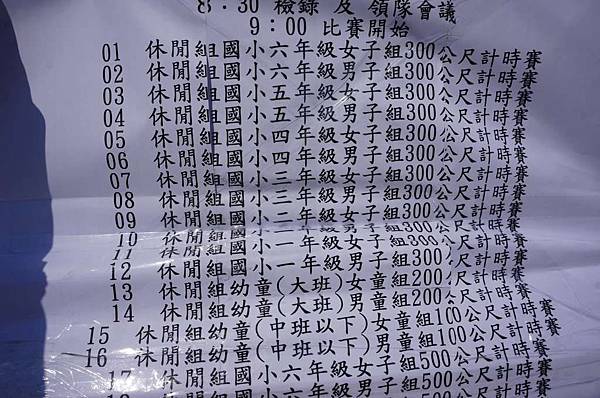 8:30 檢錄 及 領隊會議
9:00 比賽開始
01 休閒組國小六年級女子組300公尺計時賽
02 休閒組國小六年級男子組300公尺計時賽
03 休閒組國小五年級女子組300公尺計時賽
04 休閒組國小五年級男子組300公尺計時賽
05 休閒組國小四年級女子組300公尺計時賽
06 休閒組國小四年級男子組300公尺計時賽
07 休閒組國小三年級女子組300公尺計時賽
08 休閒組國小三年級男子組300公尺計時賽
09 休閒組國小二年級女子組300公尺計時賽
10 休閒組
11 休閒組國小一年級女子組300公尺計時賽
12 休閒組國小一年級男子組300公尺計時賽
13 休閒組幼童(大班)女童組200公尺計時賽
14 休閒組幼童(大班)男童組200公尺計時賽
15 休閒組幼童(中班以下)女童組100公尺計時賽
16 休閒組幼童(中班以下)男童組100公尺計時賽
17 休閒組國小六年級女子組500公尺計時賽
休閒組國小六年級男子組500公尺計時賽